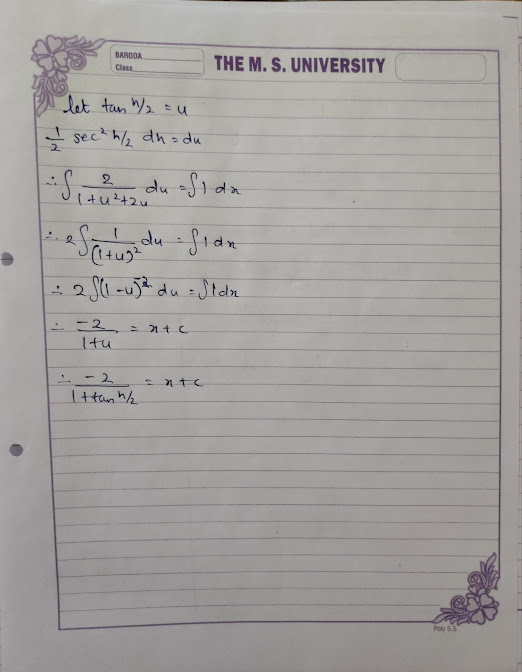 BARODA
Class
THE M. S. UNIVERSITY
let tan h/2 = u
1/2 sec² h/2 dh = du
∴ ∫ 2/(1+u²+2u) du = ∫1 dx
∴ 2∫ 1/(1+u)² du = ∫1 dx
∴ 2∫(1-u)⁻² du = ∫1dx
∴ -2/(1+u) = x + c
∴ -2/(1+tan h/2) = x + c
Poly S.S.